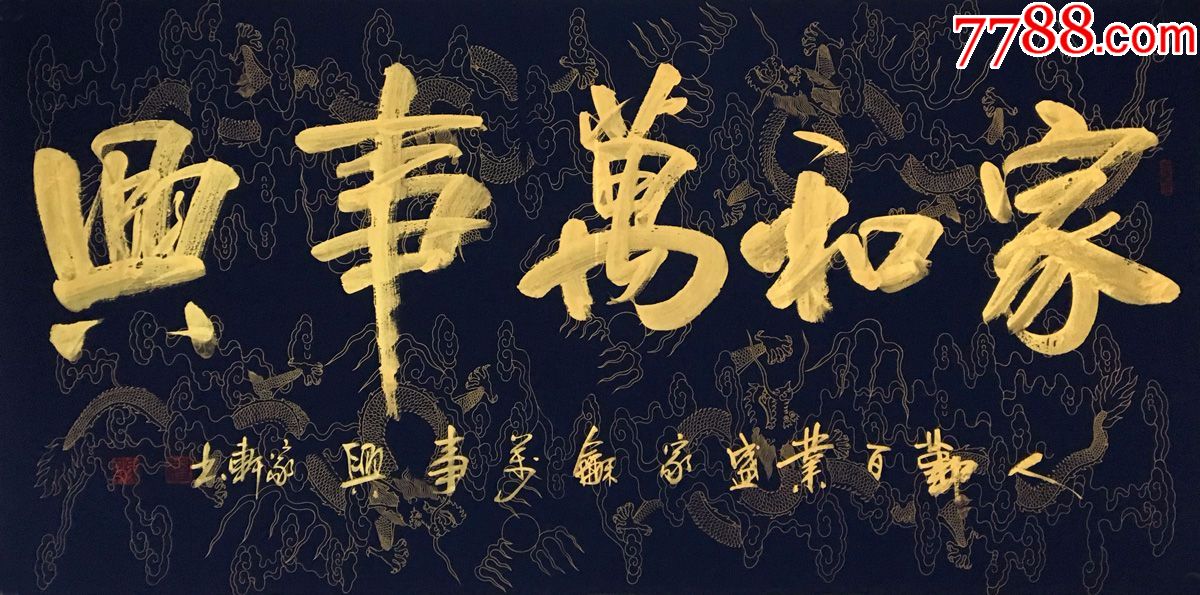 7788.com
家和萬事興
人勤百業盛家龢萬事興家軒